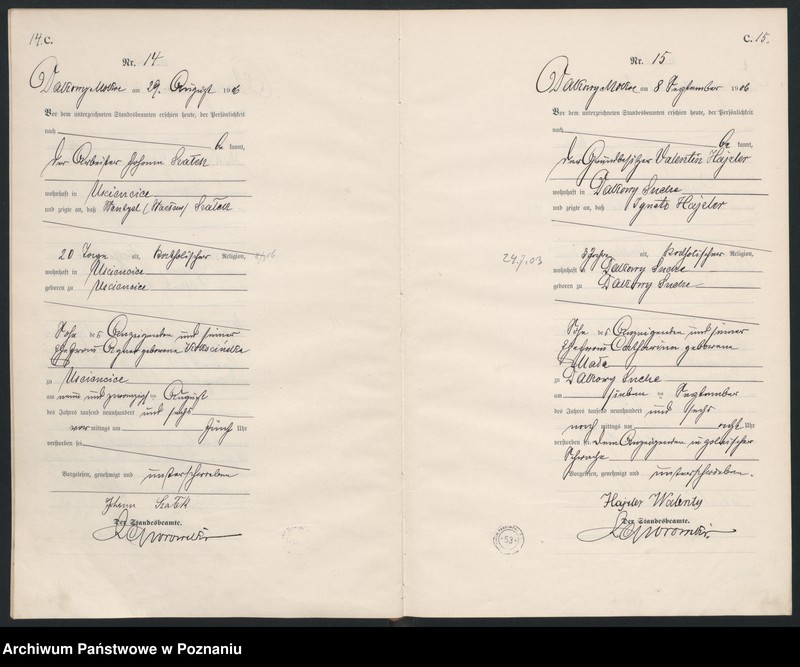 14.C.
Nr. 14
Dalkowy Mokre am 29. August 1906
Vor dem unterzeichneten Standesbeamten erschien heute, der Persönlichkeit
nach
be kannt,
der Arbeiter Johann Szałek
wohnhaft in Usciencice
und zeigte an, daß Szałek
20 Tage alt, katholischer Religion,
wohnhaft in Usciencice
geboren zu Usciencice
Sohn des Anzeigenden und seiner
Ehefrau geborene
zu Usciencice
am neun und zwanzig ten August
des Jahres tausend neunhundert und sechs
vor mittags um fünf Uhr
verstorben sei
Vorgelesen, genehmigt und unterschrieben
Johann Szałek
Der Standesbeamte.
C. 15.
Nr. 15
Dalkowy Mokre am 8 September 1906
Vor dem unterzeichneten Standesbeamten erschien heute, der Persönlichkeit
nach
be kannt,
der Grundbesitzer Valentin Hajeler
wohnhaft in Dalkowy Suche
und zeigte an, daß Ignatz Hajeler
24.7.03
3 Jahre alt, katholischer Religion,
wohnhaft in Dalkowy Suche
geboren zu Dalkowy Suche
Sohn des Anzeigenden und seiner
Ehefrau Catharina geborenen
zu Dalkowy Suche
am sieben ten September
des Jahres tausend neunhundert und sechs
nach mittags um acht Uhr
verstorben sei. Dem Anzeigenden in polnischer
Sprache
Vorgelesen, genehmigt und unterschrieben.
Hajeler Walenty
Der Standesbeamte.
53
Archiwum Państwowe w Poznaniu